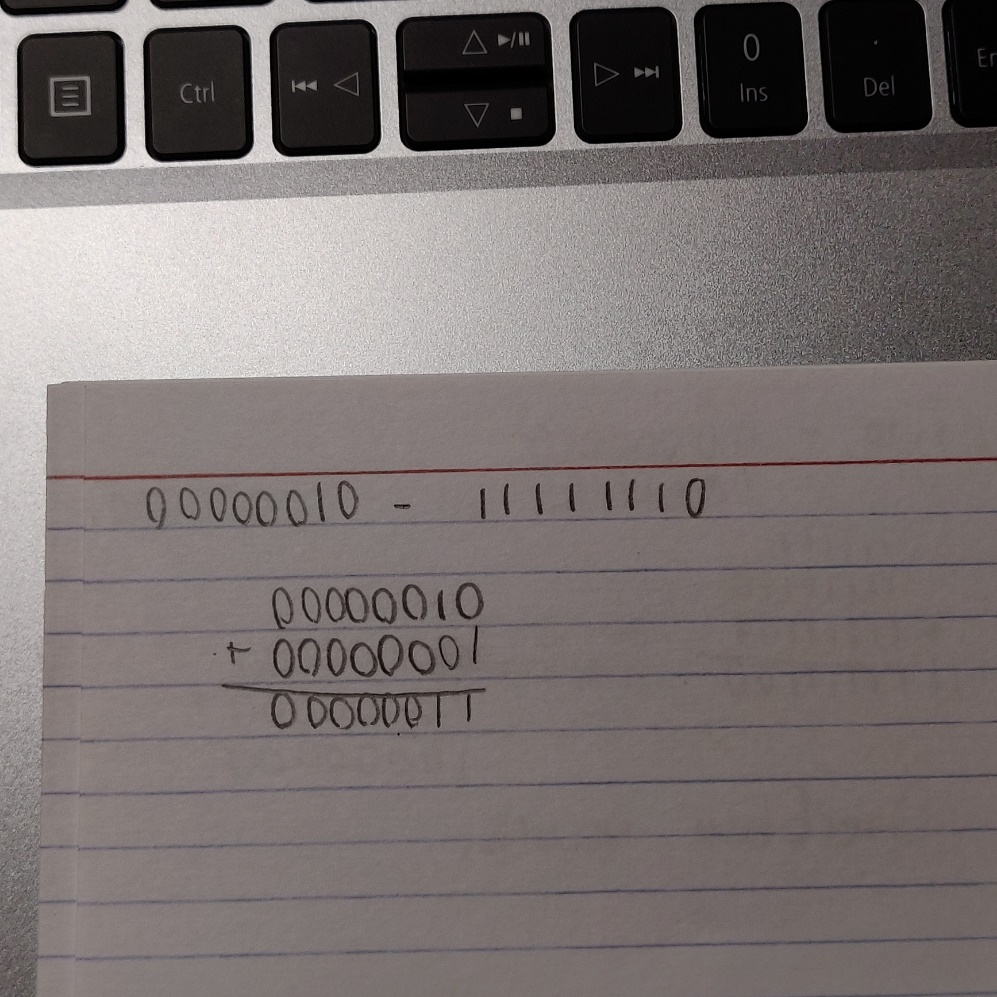 Ctrl 0 Ins . Del En
00000010 - 11111110
00000010
+ 00000001
00000011